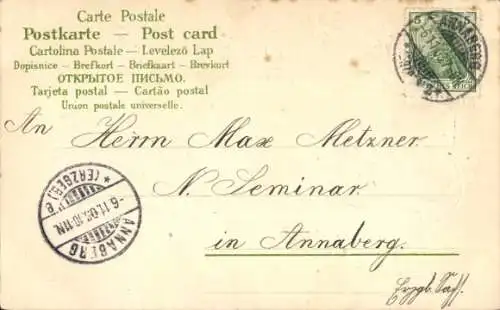 Carte Postale
Postkarte — Post card
Cartolina Postale — Levelező Lap
Dopisnice — Brefkort — Briefkaart — Brevkort
ОТКРЫТОЕ ПИСЬМО.
Tarjeta postal — Cartão postal
Union postale universelle.
An Herrn Max Metzner
N. Seminar
in Annaberg.
Erzgb. Sachs.
ANNABERG
5
ANNABERG
(ERZGEB.)